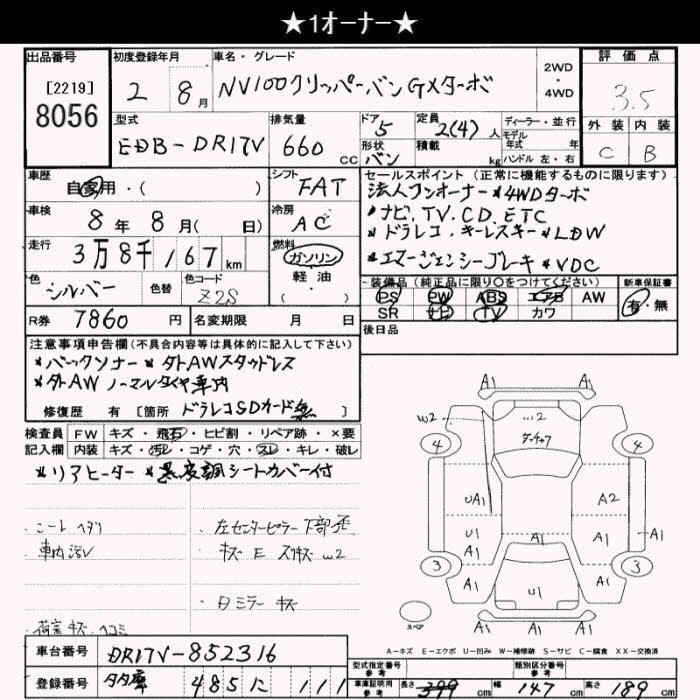 ★1オーナー★
出品番号
[2219]
8056
初度登録年月
2 8月
車名・グレード
NV100クリッパーバンGXターボ
2WD
・
4WD
評価点
3.5
外装 内装
C B
型式
EDB-DR17V
排気量
660 cc
ドア 5
形状 バン
定員 2(4)人
積載 kg
ディーラー・並行
モデル
年式 年
ハンドル 左・右
車歴
自家用・( )
シフト
FAT
車検
8年 8月( 日)
冷房
AC
走行
3万8千167km
燃料
ガソリン
軽・油
・( )
色 シルバー
色替
色コード
Z2S
R券 7860円
名変期限 月 日
セールスポイント(正常に機能するものに限ります)
法人ワンオーナー*4WDターボ
*ナビ、TV、CD、ETC
*ドラレコ、キーレスキー*LDW
*エマージェンシーブレーキ*VDC
装備品(純正品に限り○をつけてください)
新車保証書
PS PW ABS エアB AW
SR ナビ TV カワ
有・無
後日品
注意事項申告欄(不具合内容等は具体的に記入して下さい)
*バックソナー*夕トAWスタッドレス
*夕トAWノーマルタイヤ車内
修復歴 有[箇所 ドラレコSDカード無]
検査員 FW キズ・飛石・ヒビ割・リペア跡・×要
記入欄 内装 キズ・汚レ・コゲ・穴・スレ・キレ・破レ
*リアヒーター*黒皮調シートカバー付
・シート ヘタリ
・車内汚レ
・荷室キズ、ヘコミ
・左センターピラー下部
キズE w2
・日ミラーキズ
A1
w2
w2
ダッチャク
4
4
A1
A1
UA1
A2
UA1
A1
A1
A1
A1
3
3
A1
U1
A1
A1
スペア
A-キズ E-エクボ U-凹み W-補修跡 S-サビ C-腐食 XX-交換済
車台番号 DR17V-852316
登録番号 多摩 485 に 111
型式指定番号
参考
類別区分番号
参考
車庫証明用
参考
長さ 399cm 幅 147cm 高さ 189cm